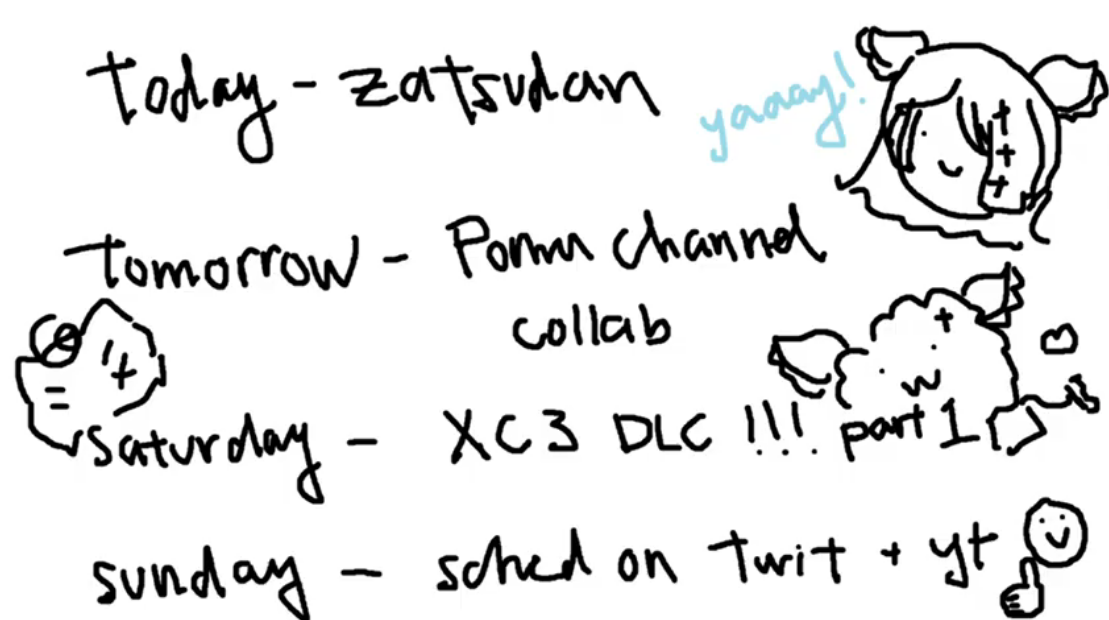 today - zatsudan
yaaay!
tomorrow - Pomu channel
collab
saturday - XC3 DLC !!! part 1
sunday - sched on twit + yt